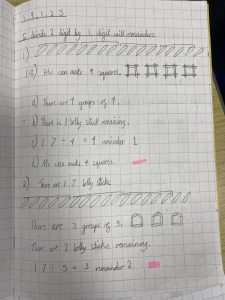 1, 9, 1, 2, 3
I divide 2 digit by 1 digit with remainders.
1)
1a) He can make 4 squares.
a) There are 4 groups of 4.
b) There is 1 lolly stick remaining.
c) 17 ÷ 4 = 4 remainder 1
d) He can make 4 squares.
2) There are 17 lolly sticks
There are 3 groups of 5.
There are 2 lolly sticks remaining.
17 ÷ 5 = 3 remainder 2